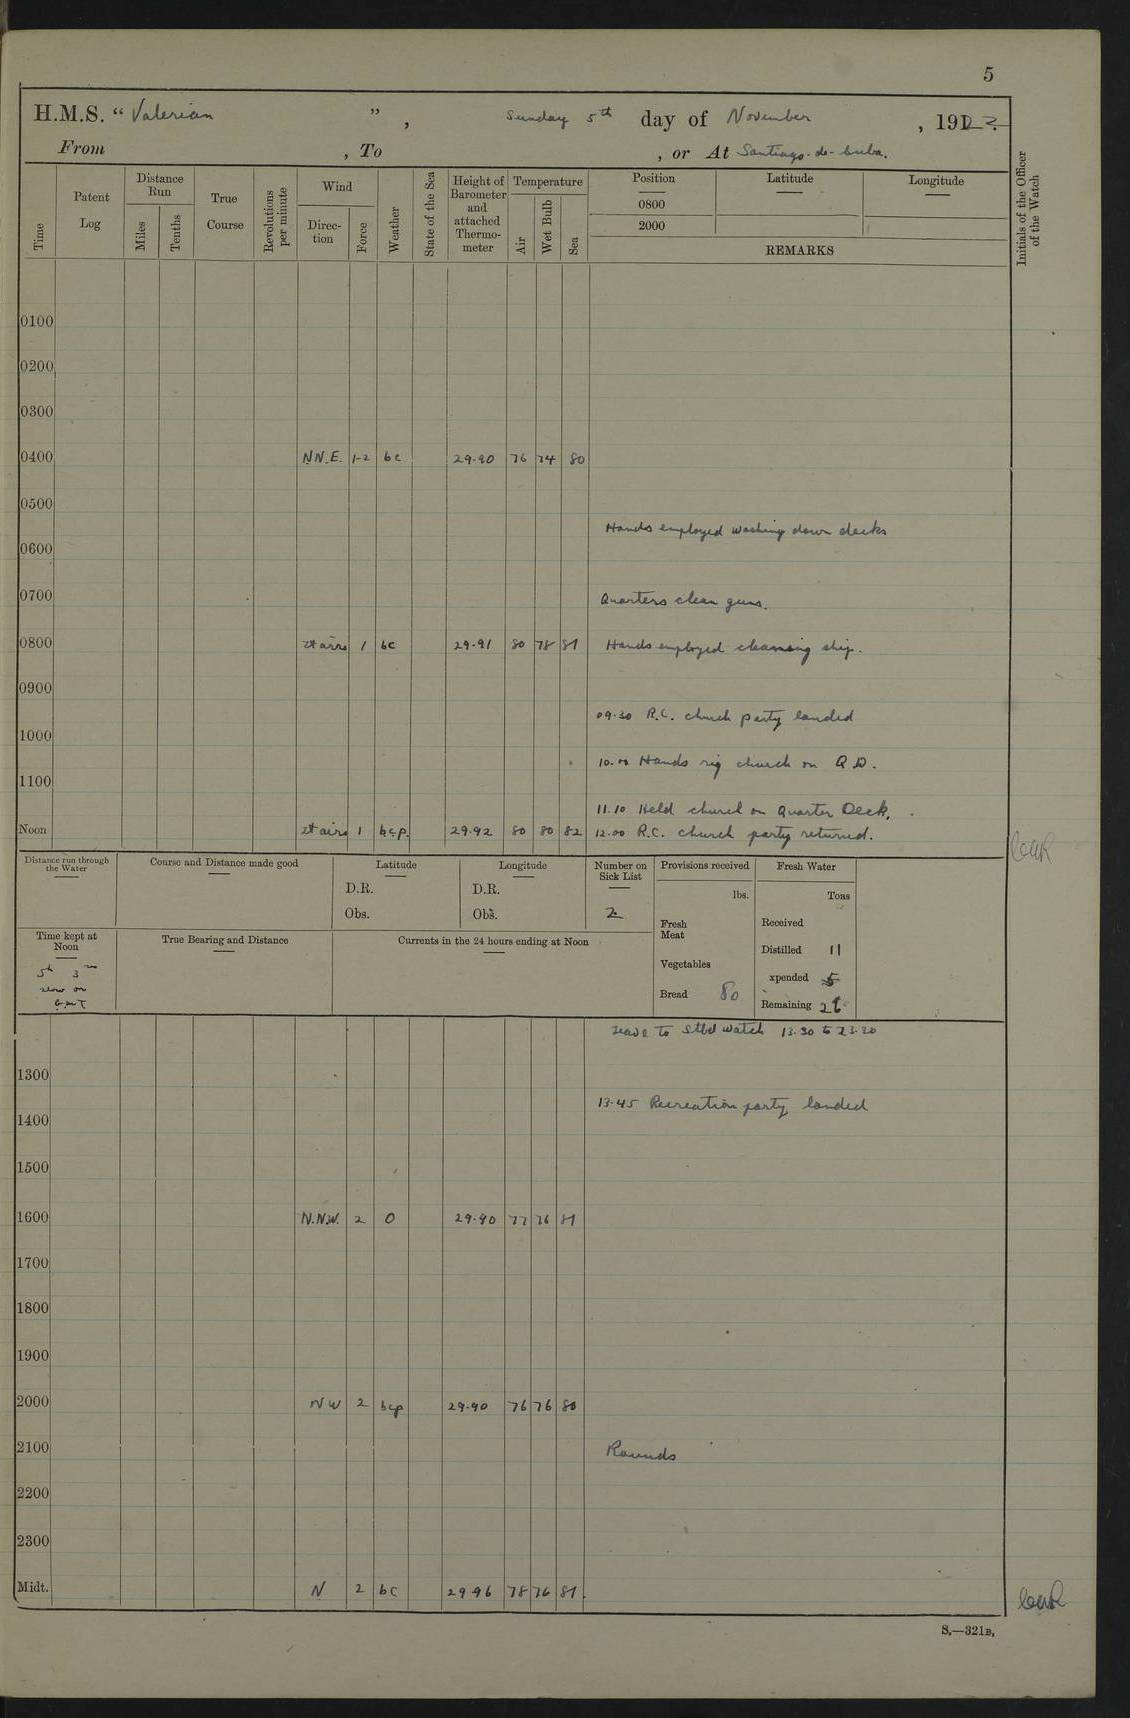 5
H.M.S. “ Valerian ” , Sunday 5th day of November , 1922
From , To , or At Santiago-de-Cuba.
Time
Patent Log
Distance Run
Miles
Tenths
True Course
Revolutions per minute
Wind
Direction
Force
Weather
State of the Sea
Height of Barometer and attached Thermometer
Temperature
Air
Wet Bulb
Sea
Position Latitude Longitude
0800
2000
REMARKS
Initials of the Officer of the Watch
0100
0200
0300
0400 N.N.E. 1-2 bc 29.90 76 74 80
0500
Hands employed washing down decks
0600
0700 Quarters clean guns.
0800 lt airs 1 bc 29.91 80 78 81 Hands employed cleansing ship.
0900
09.30 R.C. church party landed
1000
10.00 Hands rig church on Q.D.
1100
11.10 Held church on Quarter Deck.
Noon lt airs 1 bcp. 29.92 80 80 82 12.00 R.C. church party returned.
Distance run through the Water
Course and Distance made good
Latitude
D.R.
Obs.
Longitude
D.R.
Obs.
Number on Sick List
2
Provisions received
lbs.
Fresh Meat
Vegetables
Bread 80
Fresh Water
Tons
Received
Distilled 11
xpended 5
Remaining
Time kept at Noon
5h 3m
slow on
GMT
True Bearing and Distance
Currents in the 24 hours ending at Noon
Leave to Stbd watch 13.30 to 23.30
1300
13.45 Recreation party landed
1400
1500
1600 N.N.W. 2 O 29.90 77 76 81
1700
1800
1900
2000 NW 2 bcp 29.90 76 76 80
2100 Rounds
2200
2300
Midt. N 2 bc 29.96 78 76 81.
S.—321B.